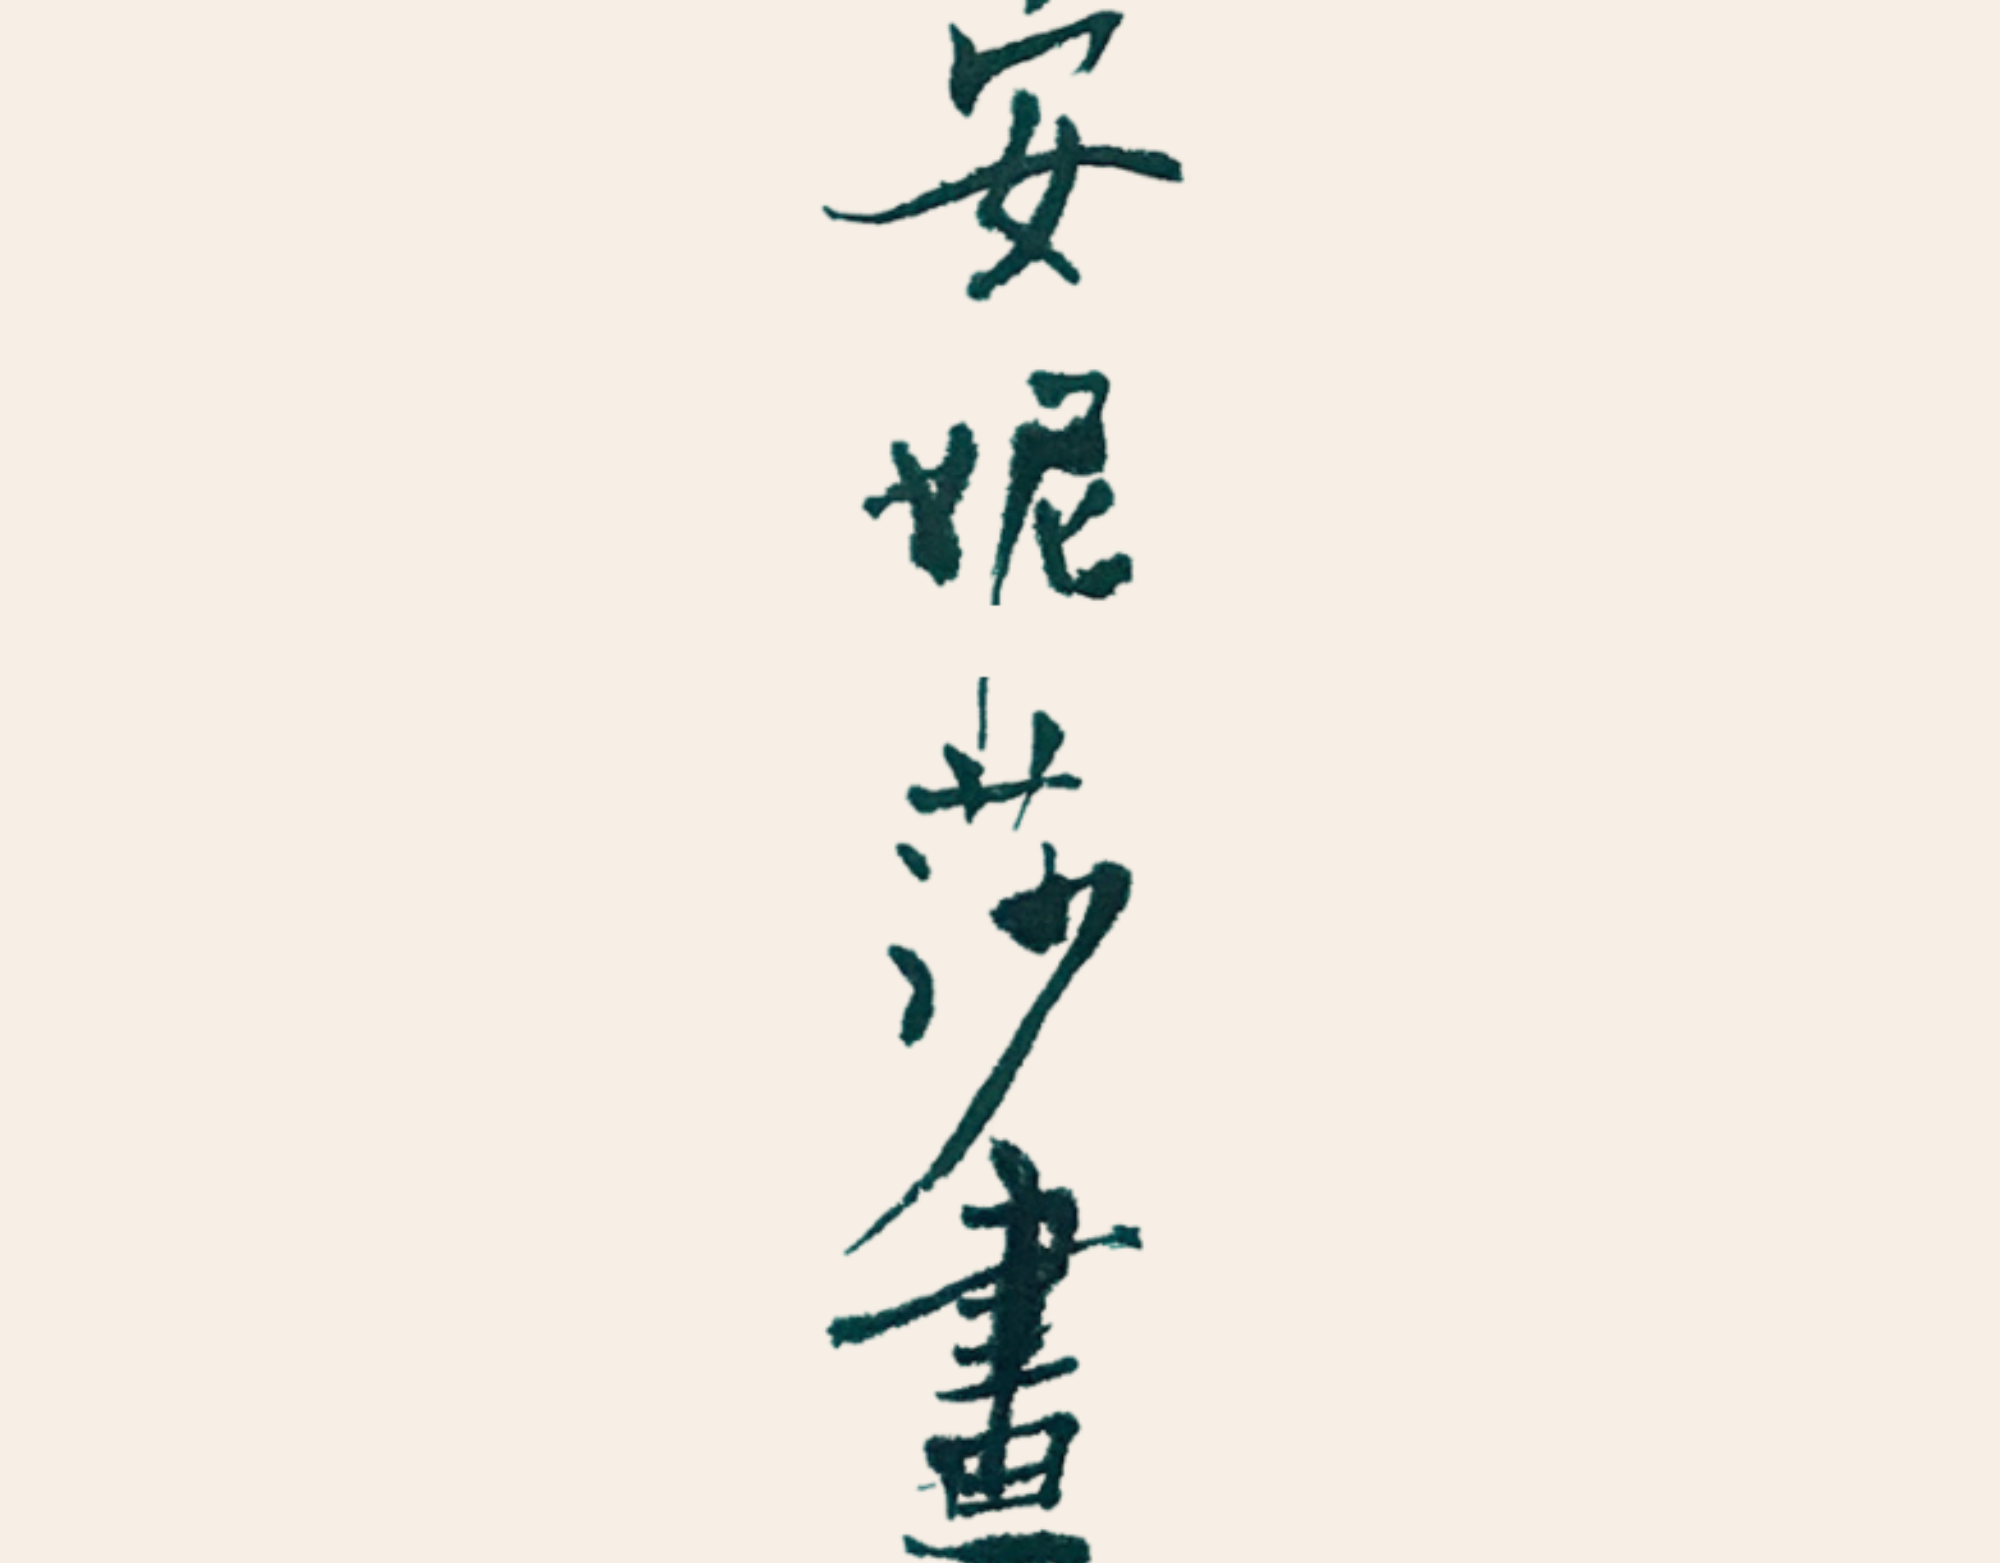 安妮莎畫